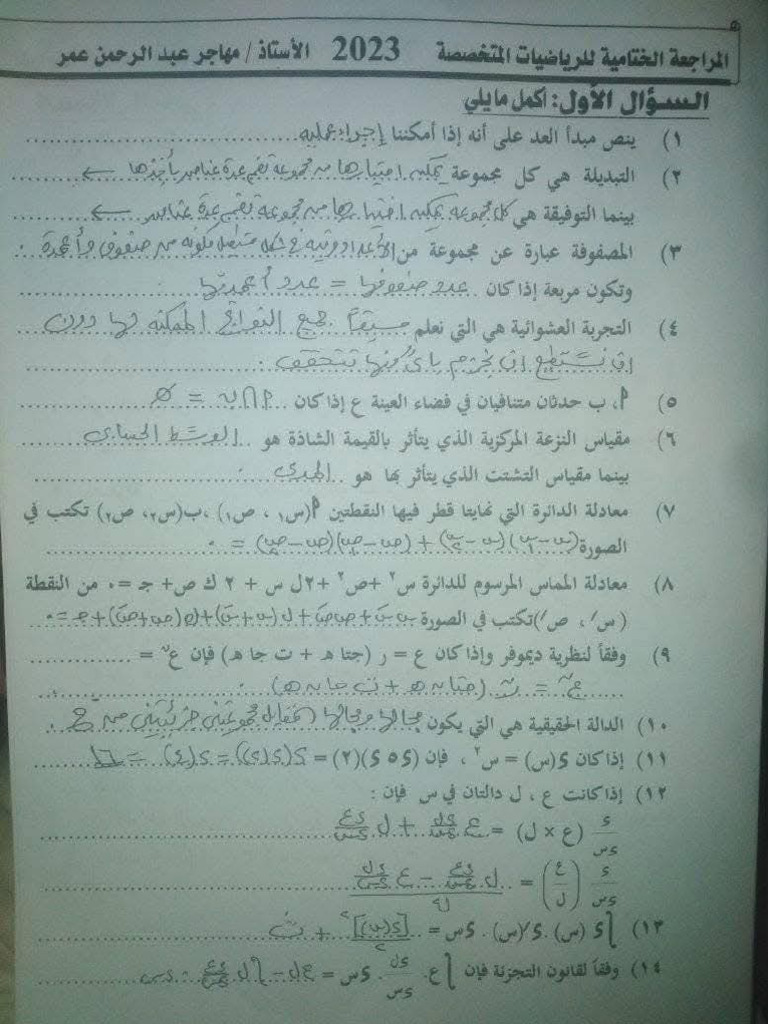 المراجعة الختامية للرياضيات المتخصصة 2023 الأستاذ / مهاجر عبد الرحمن عمر
السؤال الأول: أكمل ما يلي
١) ينص مبدأ العد على أنه إذا أمكننا إجراء عملية
٢) التبديلة هي كل مجموعة يمكن اختيارها من مجموعة تضم عدة عناصر بأخذها ←
بينما التوفيقة هي كل مجموعة يمكن اختيارها من مجموعة تضم عدة عناصر ←
٣) المصفوفة عبارة عن مجموعة من الأعداد مرتبة في شكل مستطيل مكونه من صفوف وأعمدة
وتكون مربعة إذا كان عدد صفوفها = عدد أعمدتها
٤) التجربة العشوائية هي التي نعلم مسبقاً جميع النواتج الممكنه لها دون
ان نستطيع ان نجزم بأي منها تتحقق
٥) أ، ب حدثان متنافيان في فضاء العينة ع إذا كان أ ∩ ب = ∅
٦) مقياس النزعة المركزية الذي يتأثر بالقيمة الشاذة هو الوسط الحسابى
بينما مقياس التشتت الذي يتأثر بها هو المدى
٧) معادلة الدائرة التي نهايتا قطر فيها النقطتين أ(س١ ، ص١) ،ب(س٢، ص٢) تكتب في
الصورة (س-س١)(س-س٢) + (ص-ص١)(ص-ص٢) = ٠
٨) معادلة المماس المرسوم للدائرة س٢ +ص٢ +٢ل س + ٢ ك ص+ جـ = ٠ من النقطة
(س/ ، ص/)تكتب في الصورة س سَ + ص صَ + ل(س+سَ)+ك(ص+صَ)+جـ=٠
٩) وفقاً لنظرية ديموفر وإذا كان ع = ر (جتا هـ + ت جا هـ) فإن عن =
عن = رن (جتا ن هـ + ت جا ن هـ)
١٠) الدالة الحقيقية هي التي يكون مجالها ومجالها المقابل مجموعتين جزئيتين من ح
١١) إذا كان د(س) = س٢ ، فإن (د٥د)(٢) = د(د(٢)) = د(٤) = ١٦
١٢) إذا كانت ع ، ل دالتان في س فإن :
د/دس (ع × ل) = ع دل/دس + ل دع/دس
د/دس (ع/ل) = (ل دع/دس − ع دل/دس)/ل٢
١٣) ∫د (س) . د/(س) . دس = [د(س)]٢/٢ + ث
١٤) وفقاً لقانون التجزئة فإن ∫ع . دل/دس . دس = ع ل - ∫ل دع/دس . دس